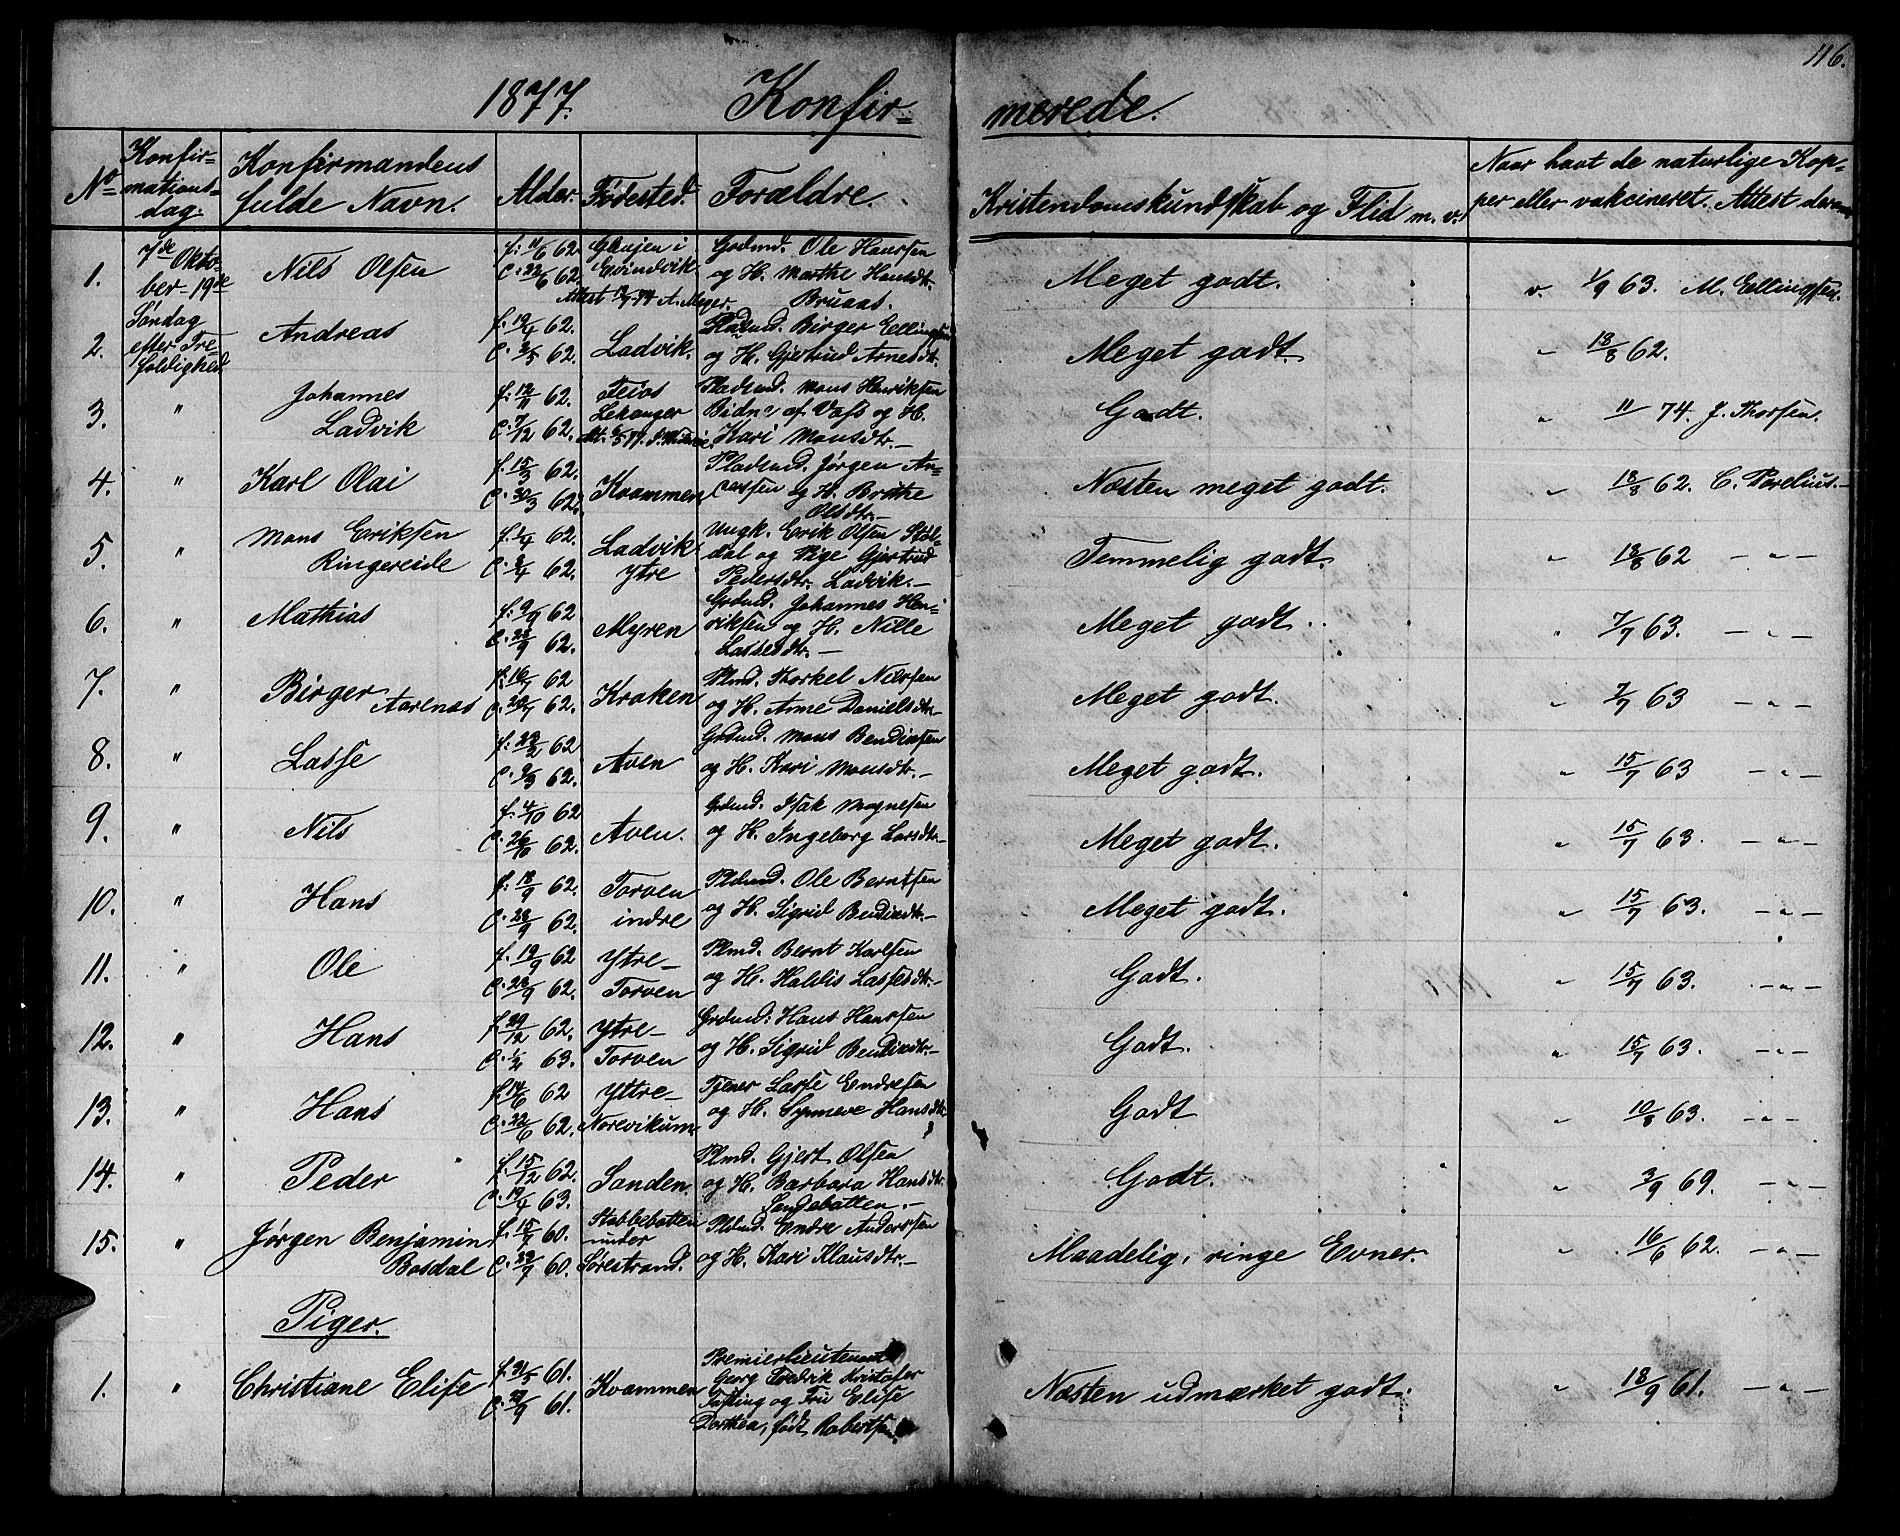 116.
1877. Konfir-
merede.
No
Konfir-
mations-
dag.
Konfirmandens
fulde Navn.
Alder.
Fødested.
Forældre.
Kristendomskundskab og Flid m. v.
Naar havt de naturlige Kop-
per eller vakcineret. Attest derom
1.
7de Okto-
ber - 19de
Søndag
efter Tre-
foldighed
Nils Olsen
f: 11/6 62
C: 22/6 62.
i
Evindvik
Attest A. Meyer.
Grdmd. Ole Hanssen
og H. Marthe Hansdtr.
Bruaas.
Meget godt.
v. 1/9 63. M. Ellingsen.
2.
Andreas
f. 19/4 62.
C. 3/5 62.
Ladvik.
Pladsmd. Birger Ellingsen
og H. Gjertrud Arnesdtr.
Meget godt.
" 18/8 62.
3.
"
Johannes
Ladvik
f: 12/11 62.
C. 7/12 62.
Feios
Lekanger
Pladsmd. Mons Henriksen
af Vass og H.
Kari Monsdtr. -
Godt.
" 11/ 74. J. Thorsen.
4.
"
Karl Olai
f. 15/3 62.
C. 30/3 62.
Kvammen
Pladsmd. Jørgen An-
og H. Brithe
Olsdtr. -
Næsten meget godt.
" 18/8 62. C. Perelius. -
5.
"
Mons Eriksen
Ringereide
f. 1/4 62.
C. 3/4 62.
Ladvik
ytre
Ungk. Erik Olsen Støl-
dal og Pige Gjertrud
Pedersdtr. Ladvik. -
Temmelig godt.
" 18/8 62 - " -
6.
"
Mathias
f: 9/9 62
C. 28/9 62.
Myren
Grdmd. Johannes Hen-
riksen og H. Nille
Lassesdtr. -
Meget godt.
" 7/7 63. - " -
7.
"
Birger
Aarenæs
f. 16/7 62
C. 20/7 62.
Kraken
Plmd. Thorkel Nilssen
og H. Anne Danielsdtr. -
Meget godt.
" 7/7 63 - " -
8.
"
Lasse
f. 23/2 62
C. 9/3 62.
Aven
Grdmd. Mons Bendixsen
og H. Kari Monsdtr. -
Meget godt.
" 15/7 63 - " -
9.
"
Nils
f. 4/10 62
C. 26/10 62.
Aven.
Grdmd. Isak Magnesen
og H. Ingeborg Larsdtr. -
Meget godt.
" 15/7 63. - " -
10.
"
Hans
f. 18/9 62.
C. 28/9 62.
Torven
indre
Pldsmd. Ole Berntsen
og H. Sigrid Bendixdtr. -
Meget godt.
" 15/7 63. - " -
11.
"
Ole
f. 19/9 62
C. 28/9 62.
Ytre -
Torven
Plmd. Bernt Karlsen
og H. Haldis Lassesdtr. -
Godt.
" 15/7 63. - " -
12.
"
Hans
f. 29/12 62.
C. 1/2 63.
Ytre -
Torven
Grdmd: Hans Hanssen
og H. Sigrid Bendixdtr. -
Godt.
" 15/7 63. - " -
13.
"
Hans
f. 14/6 62
C. 22/6 62.
Yttre -
Norevikum
Tjener Lasse Endresen
og H. Synneve Hansdtr
Godt
" 10/8 63. - " -
14.
"
Peder
f. 15/12 62.
C. 19/4 63.
Sanden
Plmd. Gjert Olsen
og H. Barbara Hansdtr.
Sandebotten. -
Godt.
" 3/9 69. - " -
15.
"
Jørgen Benjamin
Bosdal
f. 15/7 60.
C. 29/7 60.
Stabbebotten
under
Sørestrand.
Pldmd. Endre Anderssen
og H. Kari Klausdtr. -
Maadelig, ringe Evner.
" 16/6 62. - " -
Piger.
1.
"
Christiane Elise
f. 31/5 61.
C. 29/9 61.
Kvammen
Premierlieutenant
Georg Fredrik Kristofer
og Fru Elise
Dorthea, født Robertsen.
Næsten udmærket godt.
" 18/9 61. - " -